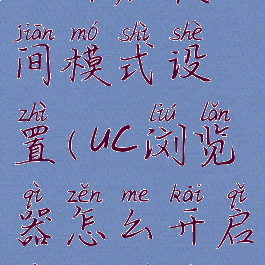 jiān mó shì shè
间模式设
zhì liú lǎn
置(UC浏览
qì zěn me kāi qǐ
器怎么开启